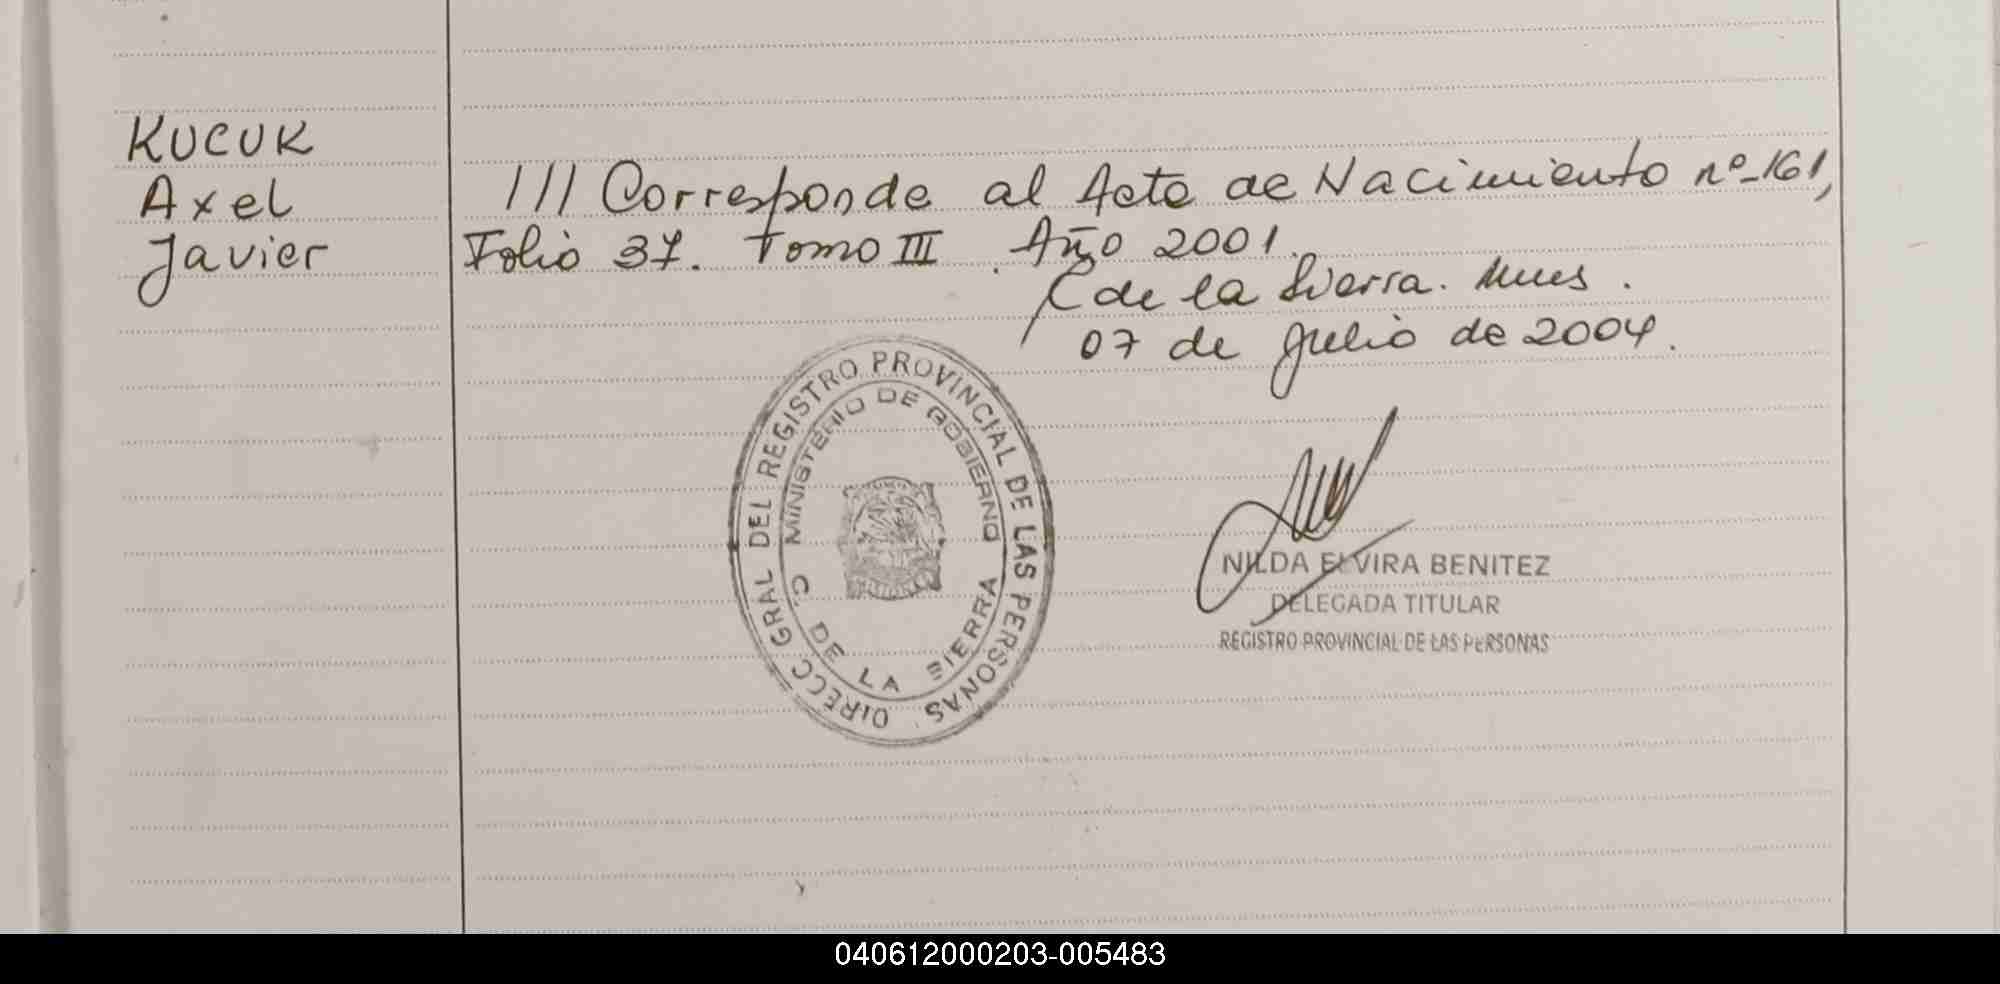 KUCUK
Axel
Javier
/// Corresponde al Acta de Nacimiento nº 161,
Folio 37. Tomo III. Año 2001.
C de la Sierra. Mnes.
07 de Julio de 2004.
DIRECC GRAL DEL REGISTRO PROVINCIAL DE LAS PERSONAS
MINISTERIO DE GOBIERNO
C. DE LA SIERRA
NILDA ELVIRA BENITEZ
DELEGADA TITULAR
REGISTRO PROVINCIAL DE LAS PERSONAS
040612000203-005483